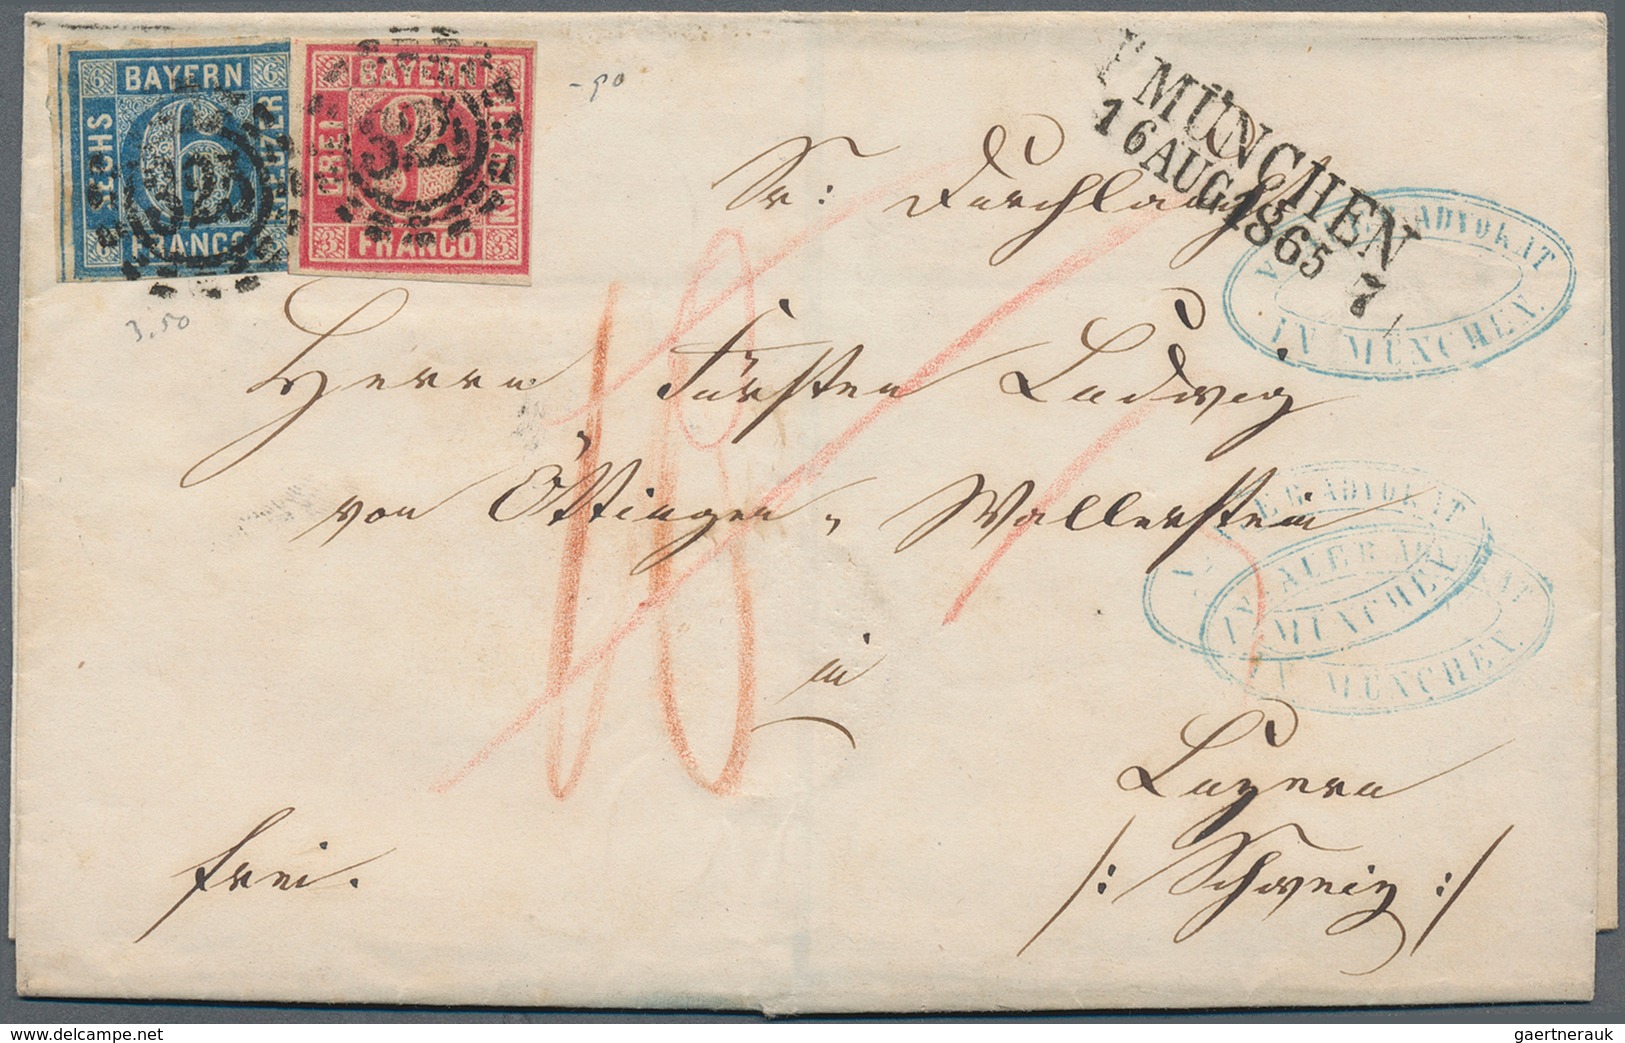 6 BAYERN 6
SECHS
KREUZER
6
FRANCO
325
3 BAYERN
DREI
KREUZER
3
3 FRANCO 3
325
-90
3.50
MÜNCHEN
16 AUG 1865 7
ADVOKAT
IN MÜNCHEN.
Sr: Durchlaucht
Herrn Fürsten Ludwig
von Öttingen-Wallerstein
R. ADVOKAT
IN MÜNCHEN
IN MÜNCHEN.
in
Luzern
/: Schweiz :/
frei.
gaertnerauk